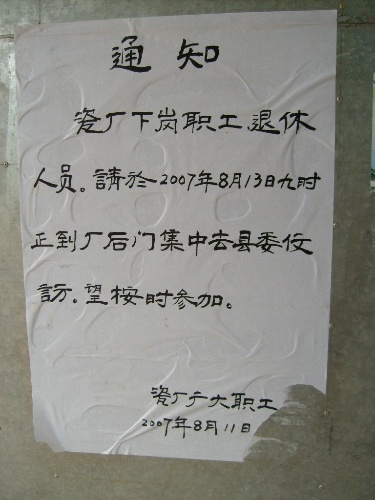 通知
瓷厂下岗职工退休
人员。請於2007年8月13日九时
正到厂后门集中去县委仗
訪。望按时参加。
瓷厂广大职工
2007年8月11日